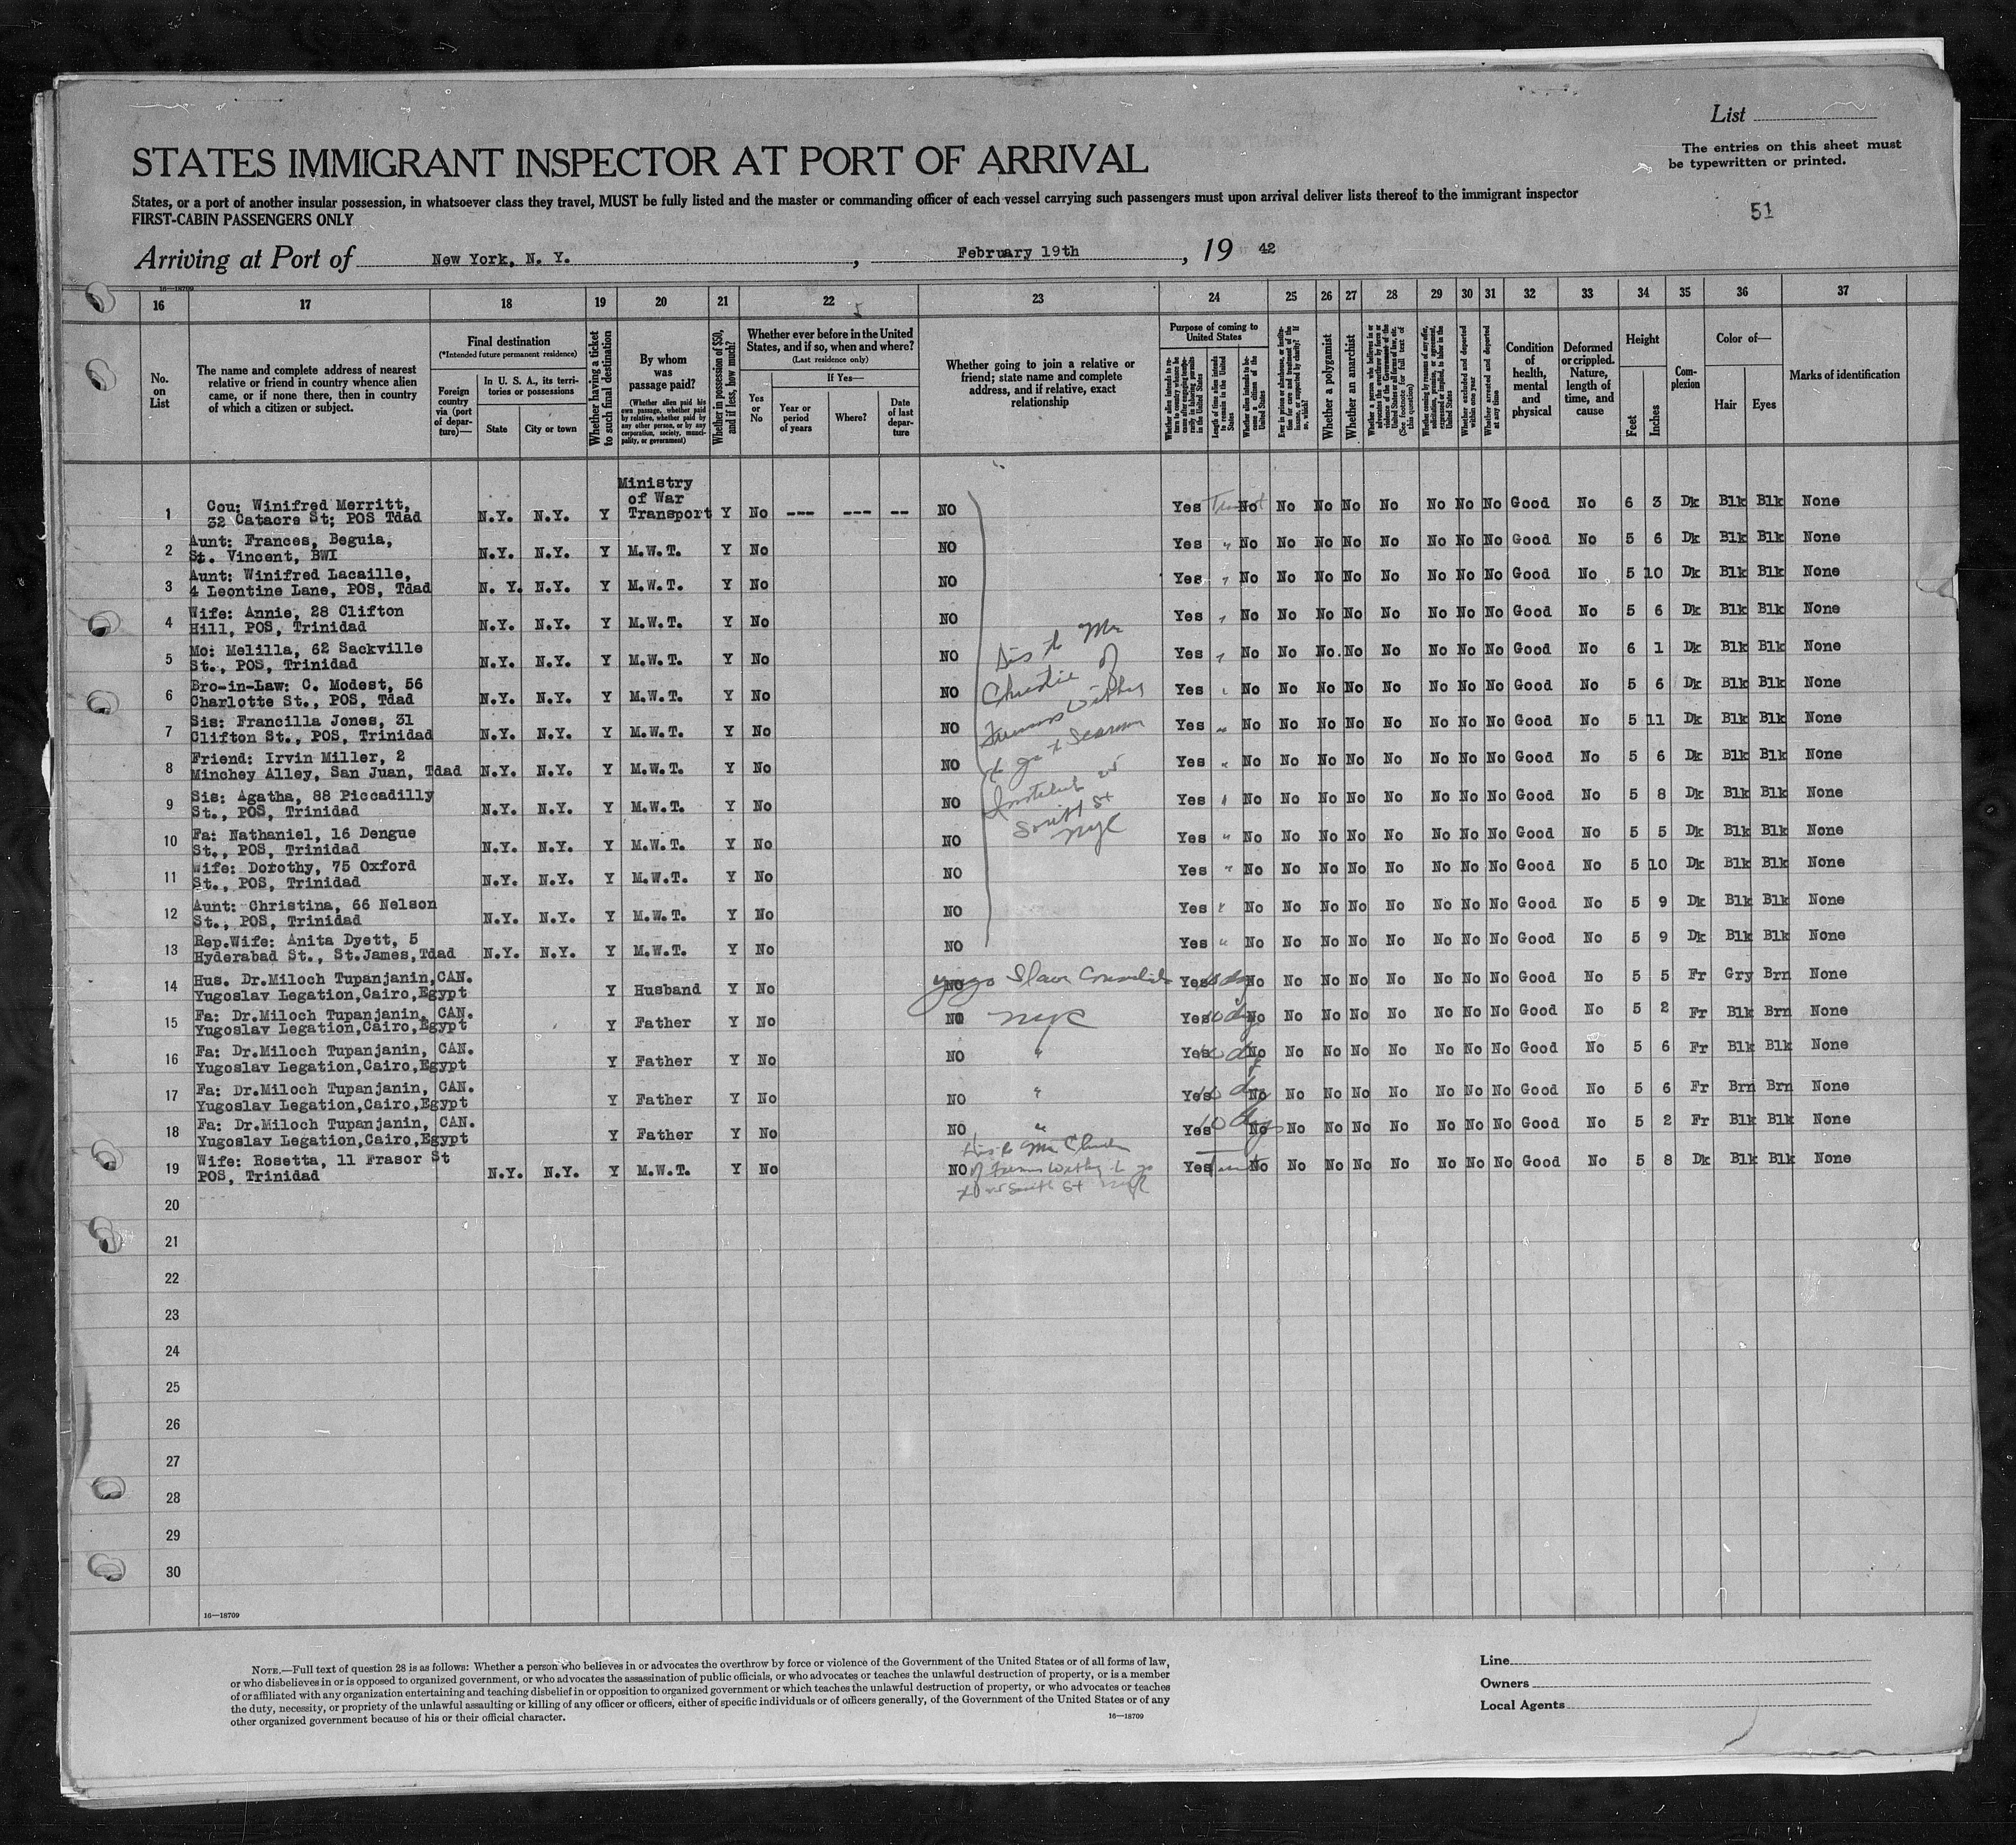 List
The entries on this sheet must
be typewritten or printed.
STATES IMMIGRANT INSPECTOR AT PORT OF ARRIVAL
States, or a port of another insular possession, in whatsoever class they travel, MUST be fully listed and the master or commanding officer of each vessel carrying such passengers must upon arrival deliver lists thereof to the immigrant inspector
FIRST-CABIN PASSENGERS ONLY
51
Arriving at Port of New York, N. Y., February 19th, 19 42
16—18709
16 17 18 19 20 21 22 23 24 25 26 27 28 29 30 31 32 33 34 35 36 37
No. on List
The name and complete address of nearest
relative or friend in country whence alien
came, or if none there, then in country
of which a citizen or subject.
Final destination
(*Intended future permanent residence)
Foreign country via (port of departure)—
In U. S. A., its territories or possessions
State
City or town
Whether having a ticket to such final destination
By whom was passage paid?
(Whether alien paid his own passage, whether paid by relative, whether paid by any other person, or by any corporation, society, municipality, or government)
Whether in possession of $50, and if less, how much?
Whether ever before in the United States, and if so, when and where?
(Last residence only)
Yes or No
If Yes—
Year or period of years
Where?
Date of last departure
Whether going to join a relative or
friend; state name and complete
address, and if relative, exact
relationship
Purpose of coming to United States
Length of time alien intends to remain in the United States
Whether alien intends to become a citizen of the United States
Whether a polygamist
Whether an anarchist
(See footnote for full text of this question)
Whether excluded and deported within one year
Whether arrested and deported at any time
Condition of health, mental and physical
Deformed or crippled. Nature, length of time, and cause
Height
Feet
Inches
Complexion
Color of—
Hair
Eyes
Marks of identification
1 Cou: Winifred Merritt, 32 Catacre St; POS Tdad N.Y. N.Y. Y Ministry of War Transport Y No --- --- -- NO Yes No No No No No No No No Good No 6 3 Dk Blk Blk None
2 Aunt: Frances, Beguia, St. Vincent, BWI N.Y. N.Y. Y M.W.T. Y No NO Yes " No No No No No No No No Good No 5 6 Dk Blk Blk None
3 Aunt: Winifred Lacaille, 4 Leontine Lane, POS, Tdad N. Y. N.Y. Y M.W.T. Y No NO Yes " No No No No No No No No Good No 5 10 Dk Blk Blk None
4 Wife: Annie, 28 Clifton Hill, POS, Trinidad N.Y. N.Y. Y M.W.T. Y No NO Yes " No No No No No No No No Good No 5 6 Dk Blk Blk None
5 Mo: Melilla, 62 Sackville St., POS, Trinidad N.Y. N.Y. Y M.W.T. Y No NO Yes " No No No. No No No No No Good No 6 1 Dk Blk Blk None
6 Bro-in-Law: C. Modest, 56 Charlotte St., POS, Tdad N.Y. N.Y. Y M.W.T. Y No NO Yes " No No No No No No No No Good No 5 6 Dk Blk Blk None
7 Sis: Francilla Jones, 31 Clifton St., POS, Trinidad N.Y. N.Y. Y M.W.T. Y No NO Yes " No No No No No No No No Good No 5 11 Dk Blk Blk None
8 Friend: Irvin Miller, 2 Minchey Alley, San Juan, Tdad N.Y. N.Y. Y M.W.T. Y No NO Yes " No No No No No No No No Good No 5 6 Dk Blk Blk None
9 Sis: Agatha, 88 Piccadilly St., POS, Trinidad N.Y. N.Y. Y M.W.T. Y No NO Yes " No No No No No No No No Good No 5 8 Dk Blk Blk None
10 Fa: Nathaniel, 16 Dengue St., POS, Trinidad N.Y. N.Y. Y M.W.T. Y No NO Yes " No No No No No No No No Good No 5 5 Dk Blk Blk None
11 Wife: Dorothy, 75 Oxford St., POS, Trinidad N.Y. N.Y. Y M.W.T. Y No NO Yes " No No No No No No No No Good No 5 10 Dk Blk Blk None
12 Aunt: Christina, 66 Nelson St., POS, Trinidad N.Y. N.Y. Y M.W.T. Y No NO Yes " No No No No No No No No Good No 5 9 Dk Blk Blk None
13 Rep.Wife: Anita Dyett, 5 Hyderabad St., St.James, Tdad N.Y. N.Y. Y M.W.T. Y No NO Yes " No No No No No No No No Good No 5 9 Dk Blk Blk None
to Mr
Christie of
to go to Seamen
Institute 25
South St
NYC
14 Hus. Dr.Miloch Tupanjanin, CAN. Yugoslav Legation, Cairo, Egypt Y Husband Y No NO Yugo Slav Consulate Yes No No No No No No No No Good No 5 5 Fr Gry Brn None
15 Fa: Dr.Miloch Tupanjanin, CAN. Yugoslav Legation, Cairo, Egypt Y Father Y No NO NYC Yes 10 dys No No No No No No No No Good No 5 2 Fr Blk Brn None
16 Fa: Dr.Miloch Tupanjanin, CAN. Yugoslav Legation, Cairo, Egypt Y Father Y No NO " Yes 10 dys No No No No No No No No Good No 5 6 Fr Blk Blk None
17 Fa: Dr.Miloch Tupanjanin, CAN. Yugoslav Legation, Cairo, Egypt Y Father Y No NO " Yes 10 dys No No No No No No No No Good No 5 6 Fr Brn Brn None
18 Fa: Dr.Miloch Tupanjanin, CAN. Yugoslav Legation, Cairo, Egypt Y Father Y No NO " Yes 10 dys No No No No No No No No Good No 5 2 Fr Blk Blk None
19 Wife: Rosetta, 11 Frasor St POS, Trinidad N.Y. N.Y. Y M.W.T. Y No NO Yes No No No No No No No No Good No 5 8 Dk Blk Blk None
to Mr
to go
to 25 South St NYC
20
21
22
23
24
25
26
27
28
29
30
16—18709
NOTE.—Full text of question 28 is as follows: Whether a person who believes in or advocates the overthrow by force or violence of the Government of the United States or of all forms of law,
or who disbelieves in or is opposed to organized government, or who advocates the assassination of public officials, or who advocates or teaches the unlawful destruction of property, or is a member
of or affiliated with any organization entertaining and teaching disbelief in or opposition to organized government or which teaches the unlawful destruction of property, or who advocates or teaches
the duty, necessity, or propriety of the unlawful assaulting or killing of any officer or officers, either of specific individuals or of officers generally, of the Government of the United States or of any
other organized government because of his or their official character.
16—18709
Line
Owners
Local Agents